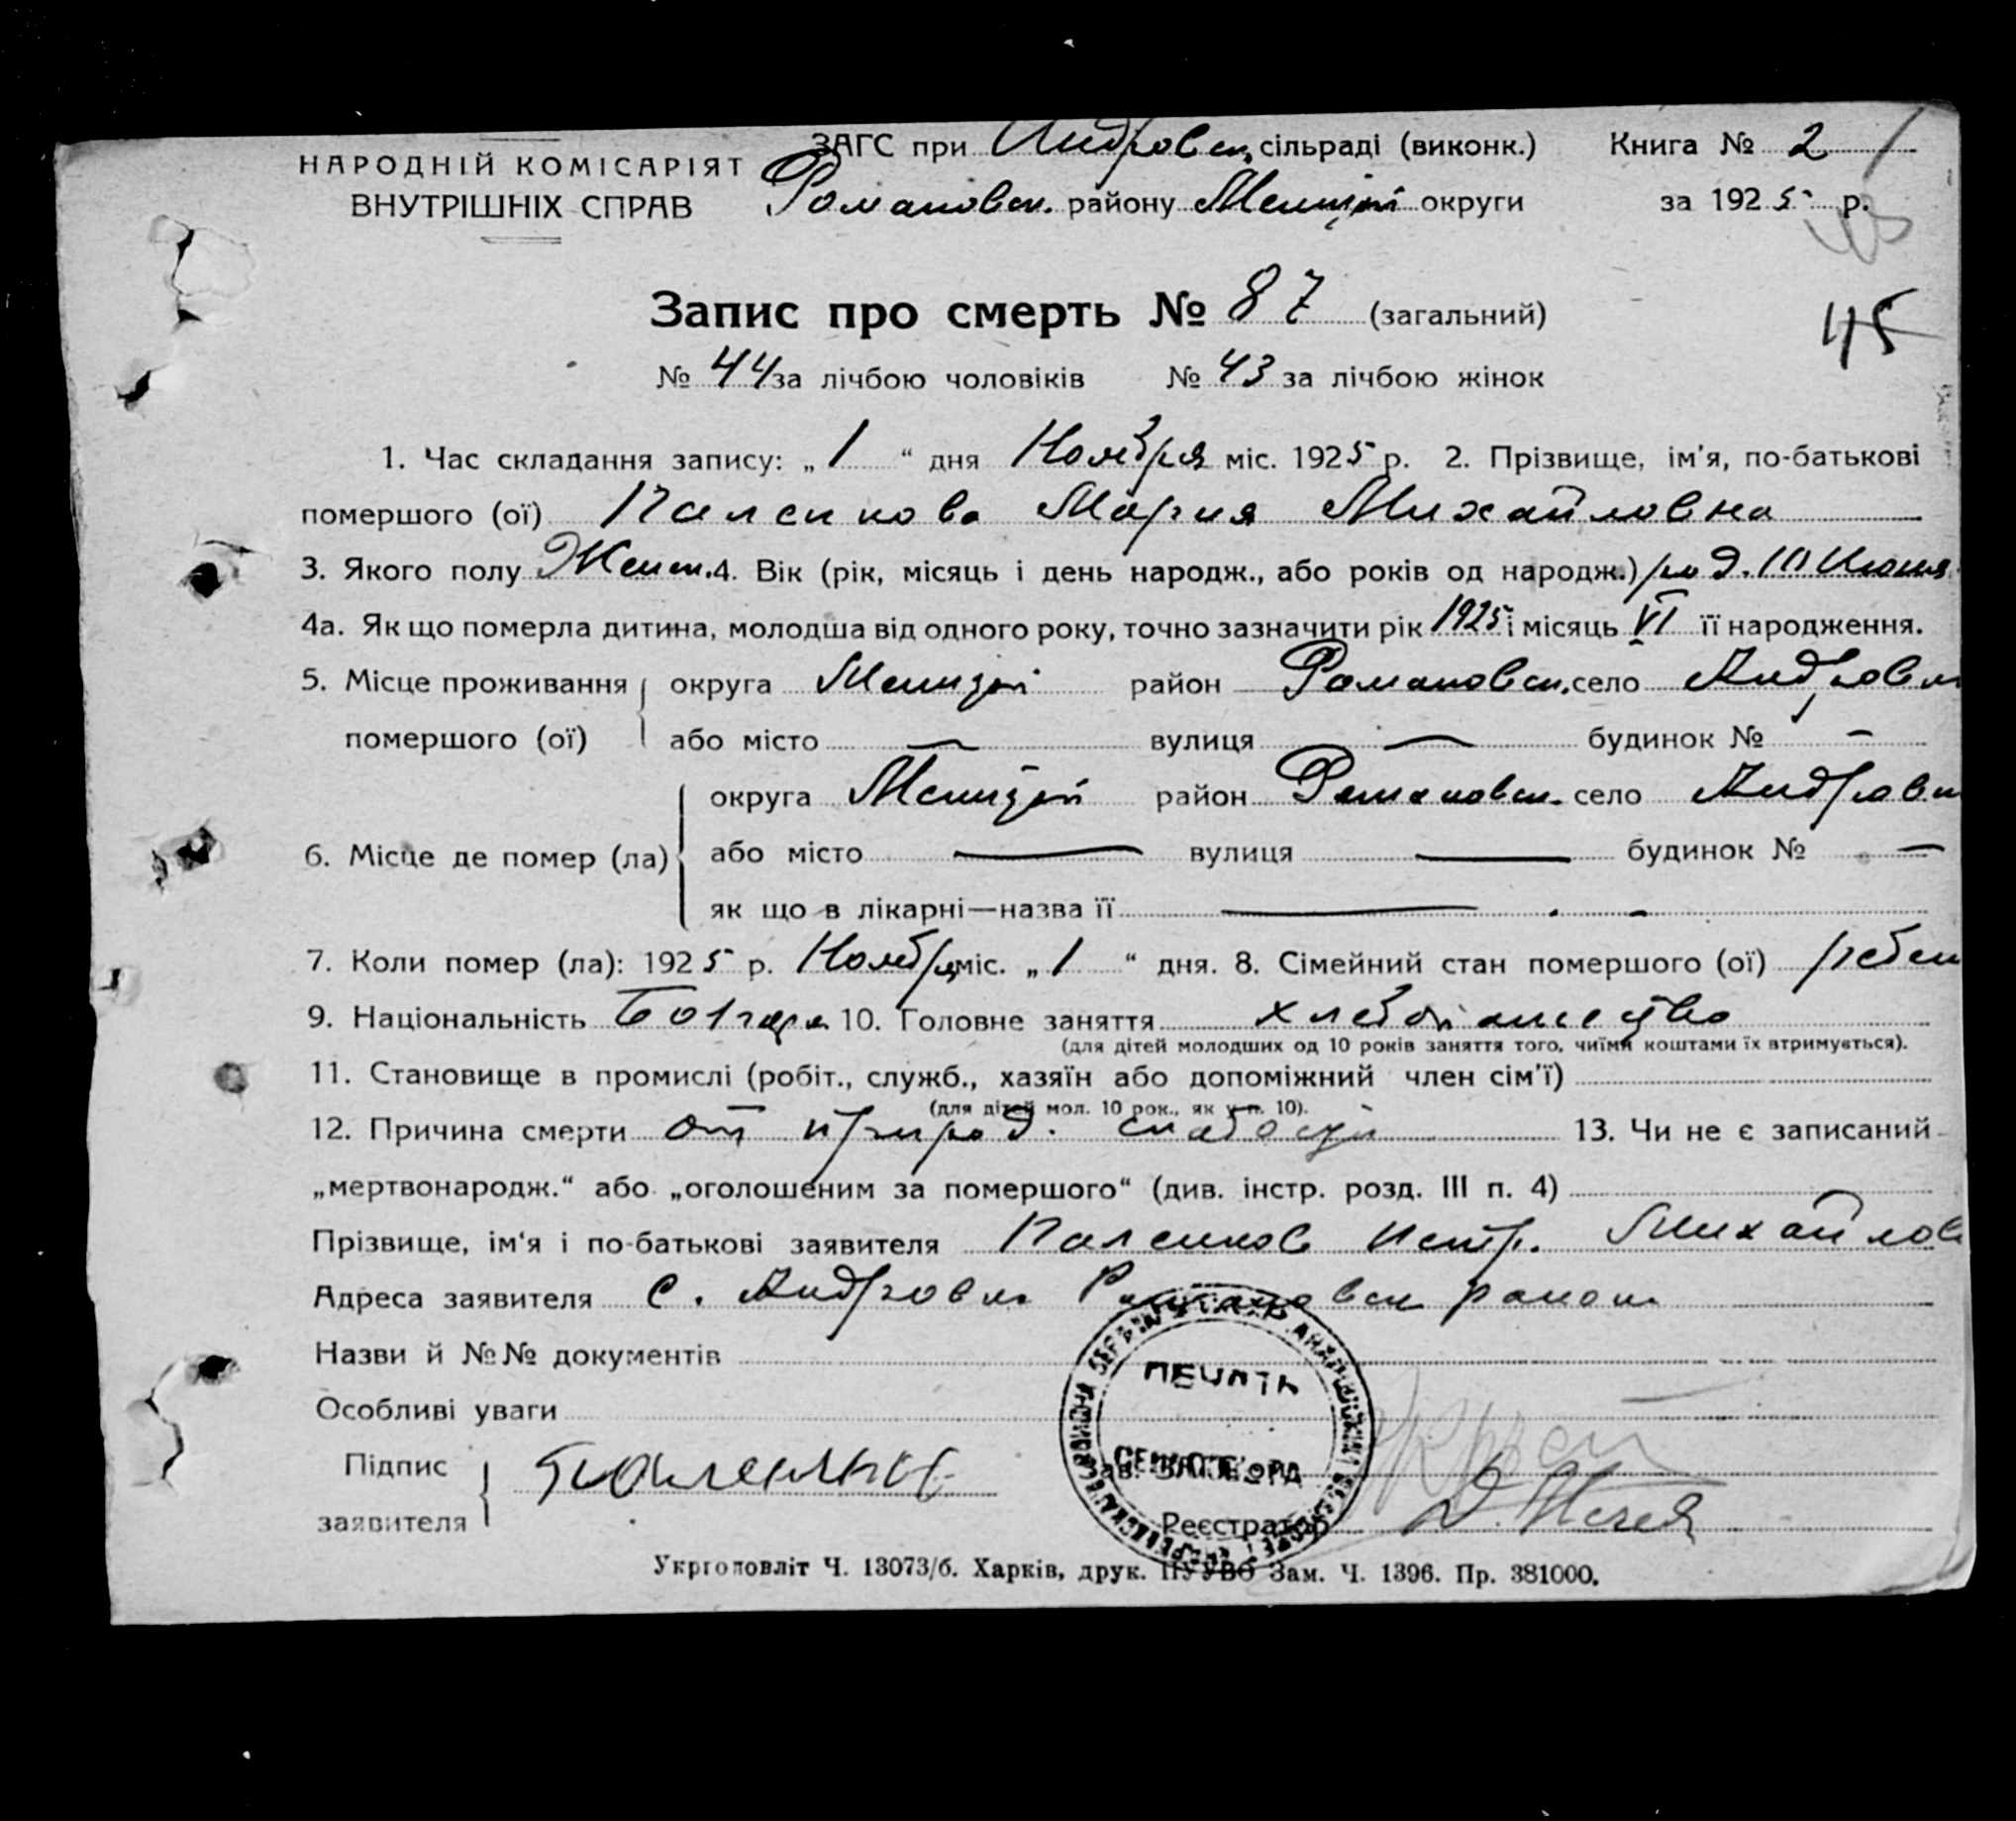 ЗАГС при Андровск. сільраді (виконк.) Книга № 2
НАРОДНІЙ КОМІСАРІЯТ
ВНУТРІШНІХ СПРАВ Романовск. району округи за 1925 р.
Запис про смерть № 87 (загальний)
45
№ 44 за лічбою чоловіків № 43 за лічбою жінок
1. Час складання запису: „ 1 “ дня Ноября міс. 1925 р. 2. Прізвище, ім'я, по-батькові
помершого (ої) Паленкова Мария Михайловна
3. Якого полу Женск. 4. Вік (рік, місяць і день народж., або років од народж.) род. Июня
4а. Як що померла дитина, молодша від одного року, точно зазначити рік 1925 і місяць VI її народження.
5. Місце проживання округа район Романовск. село Андровк
помершого (ої) або місто — вулиця — будинок № —
округа район Романовск. село Андровк
6. Місце де помер (ла) або місто — вулиця — будинок № —
як що в лікарні—назва її —
7. Коли помер (ла): 1925 р. Ноября міс. „ 1 “ дня. 8. Сімейний стан помершого (ої) ребен
9. Національність Болгарк 10. Головне заняття хлебопашество
(для дітей молодших од 10 років заняття того, чиїми коштами їх втримується).
11. Становище в промислі (робіт., служб., хазяїн або допоміжний член сім'ї)
(для дітей мол. 10 рок., як у п. 10).
12. Причина смерти от природ. слабости 13. Чи не є записаний
„мертвонародж.“ або „оголошеним за помершого“ (див. інстр. розд. III п. 4)
Прізвище, ім'я і по-батькові заявителя Паленков Петр. Михайлов
Адреса заявителя с. Андровк Романовск район
Назви й №№ документів
Особливі уваги
ПЕЧАТЬ
Підпис
заявителя
Зав. ЗАГС'ом
Реєстратор
Укрголовліт Ч. 13073/б. Харків, друк. ПУУВО Зам. Ч. 1396. Пр. 381000.